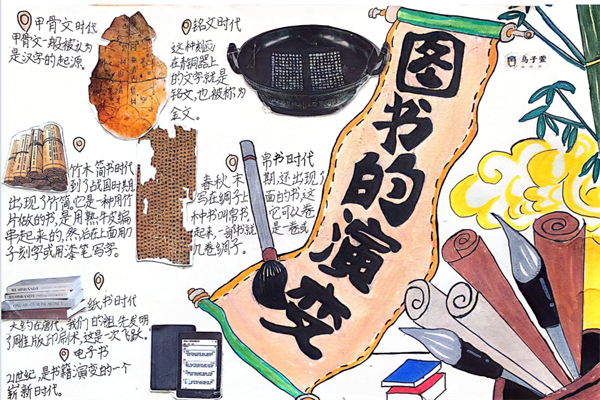 甲骨文时代
甲骨文一般被认为
是汉字的起源。
铭文时代
这种刻画
在青铜器上
的文字就是
铭文,也被称为
金文。
图书的演变
竹木简书时代
到了战国时期
出现了竹简。它是一种用竹
片做的书,是用熟牛皮编
串起来的,然后在上面用
子刻字或用漆笔写字。
帛书时代
春秋末期,还出现了
写在绸子上面的书,这
种书叫帛书,它可以卷
起来,一部书就是一卷或
几卷绸子。
REMBRANDT
REMBRANDT
纸书时代
大约在唐代,我们的祖先发明
了雕版印刷术,这是一次飞跃。
电子书
21世纪,是书籍演变的一个
崭新时代。